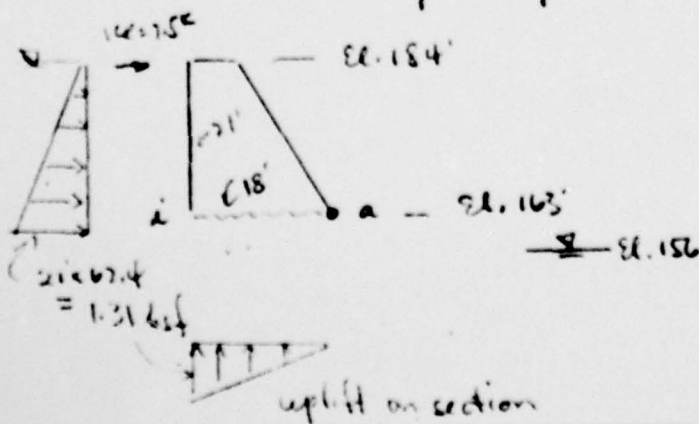 El. 184'
21'
18'
i
a
El. 163'
El. 156
21 x 62.4
= 1.31 ksf
uplift on section